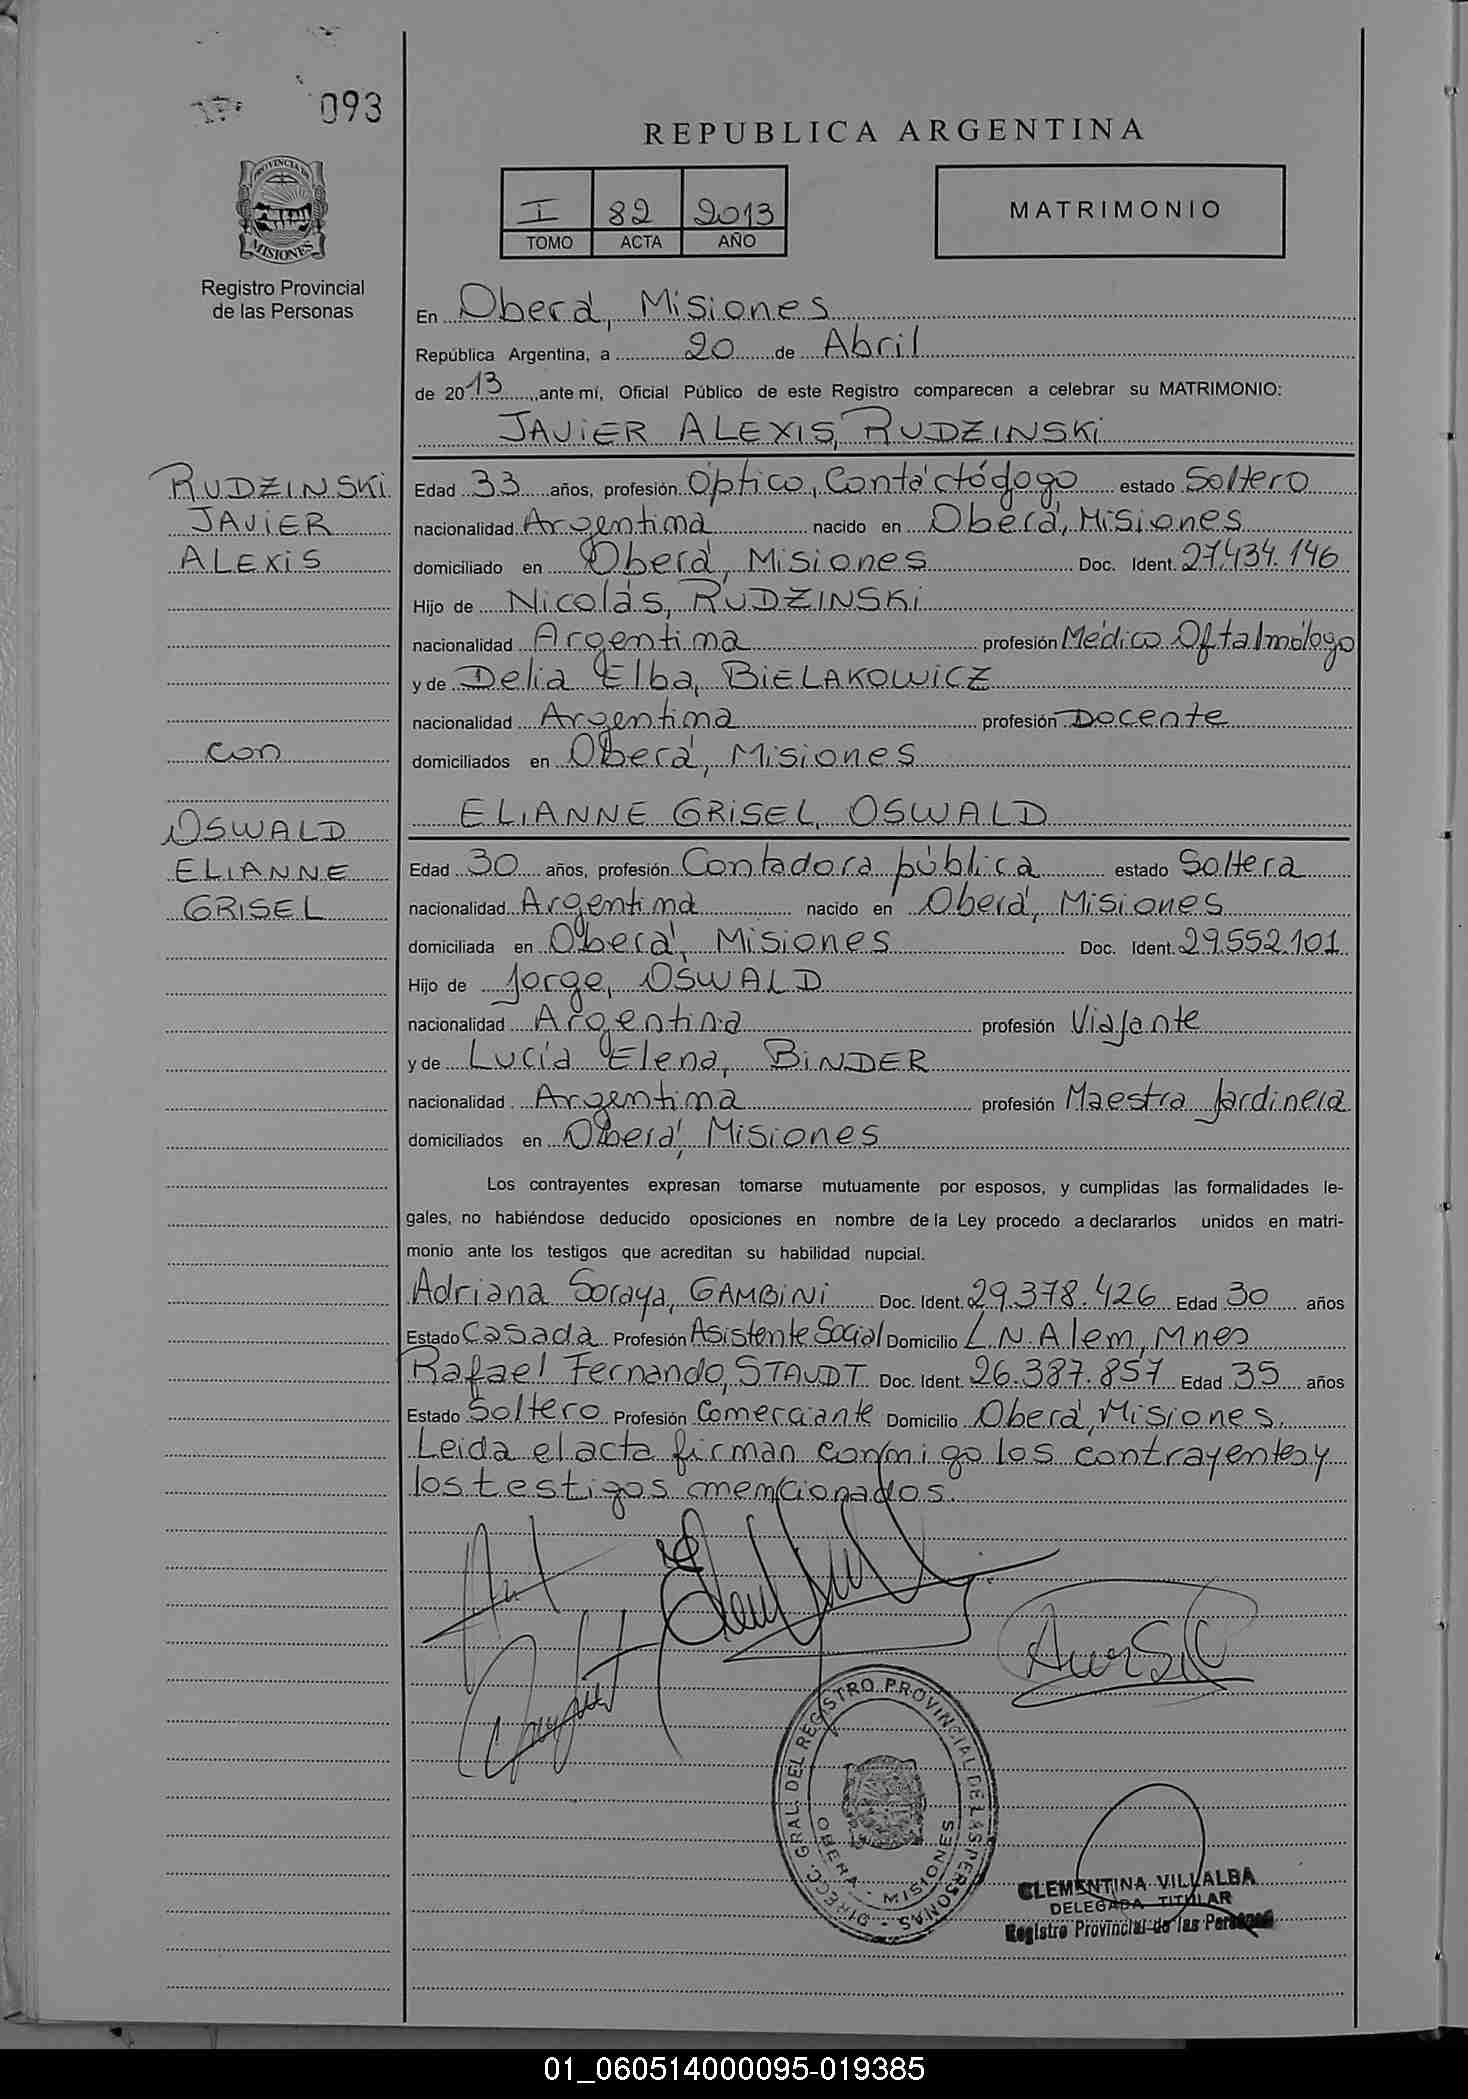 093
PROVINCIA DE
MISIONES
Registro Provincial
de las Personas
REPUBLICA ARGENTINA
I 82 2013
TOMO ACTA AÑO
MATRIMONIO
En Oberá, Misiones
República Argentina, a 20 de Abril
de 2013 ,ante mí, Oficial Público de este Registro comparecen a celebrar su MATRIMONIO:
JAViER ALEXIS, RUDZINSKi
RUDZINSKi
JAViER
ALEXiS
con
OSWALD
ELIANNE
GRISEL
Edad 33 años, profesión Optico, Contáctógogo estado Soltero
nacionalidad Argentina nacido en Oberá, Misiones
domiciliado en Oberá, Misiones Doc. Ident. 27.434.146
Hijo de Nicolás, RUDZINSKi
nacionalidad Argentina profesión Médico Oftalmólogo
y de Delia Elba, BiELAKOWiCZ
nacionalidad Argentina profesión Docente
domiciliados en Oberá, Misiones
ELIANNE GRiSEL, OSWALD
Edad 30 años, profesión Contadora pública estado Soltera
nacionalidad Argentina nacido en Oberá, Misiones
domiciliada en Oberá, Misiones Doc. Ident. 29.552.101
Hijo de Jorge, OSWALD
nacionalidad Argentina profesión Viajante
y de Lucía Elena, BiNDER
nacionalidad Argentina profesión Maestra Jardinera
domiciliados en Oberá, Misiones
Los contrayentes expresan tomarse mutuamente por esposos, y cumplidas las formalidades le-
gales, no habiéndose deducido oposiciones en nombre de la Ley procedo a declararlos unidos en matri-
monio ante los testigos que acreditan su habilidad nupcial.
Adriana Soraya, GAMBiNi Doc. Ident. 29.378.426 Edad 30 años
Estado Casada Profesión Asistente Social Domicilio L.N.Alem, Mnes
Rafael Fernando, STAUDT Doc. Ident. 26.387.857 Edad 35 años
Estado Soltero Profesión Comerciante Domicilio Oberá, Misiones.
Leida el acta firman conmigo los contrayentes y
los testigos mencionados.
DIRECC. GRAL. DEL REGISTRO PROVINCIAL DE LAS PERSONAS -
OBERA - MISIONES
CLEMENTINA VILLALBA
DELEGADA TITULAR
Registro Provincial de las Personas
01_060514000095-019385